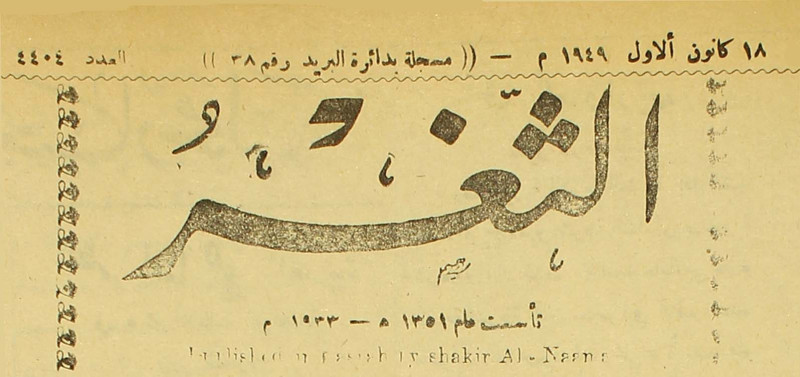 ١٨ كانون ألاول ١٩٤٩ م — (( مسجلة بدائرة البريد رقم ٣٨ )) العدد ٤٤٠٤
الثَّغْرُ
تأسست عام ١٣٥١ ه — ١٩٣٣ م
by shakir Al-Naama